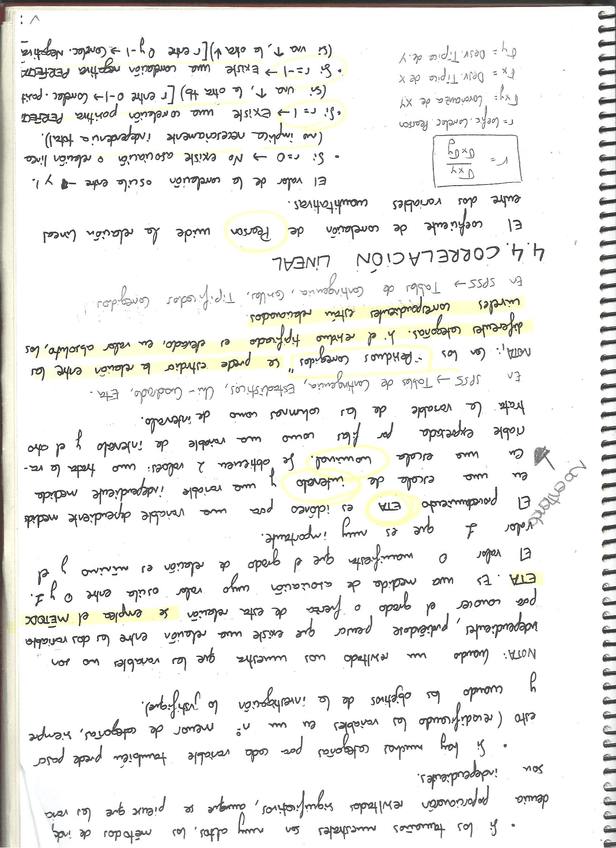 • Si los tamaños muestrales son muy altos, los métodos de inde
dencia proporcionarán resultados significativos, aunque se piense que las varia
son independientes.
• Si hay muchas categorías por cada variable también puede pasar
esto (recodificando las variables en un nº menor de categorías, siempre
y cuando los objetivos de la investigación lo justifique).
NOTA: Cuando un resultado nos muestra que las variables no son
independientes, pudiéndose pensar que existe una relación entre las dos variables
para conocer el grado o fuerza de esta relación se emplea el MÉTODO
ETA. Es una medida de asociación cuyo valor oscila entre 0 y 1.
El valor 0 manifiesta que el grado de relación es mínimo y el
valor 1 que es muy importante.
El procedimiento ETA es idóneo para una variable dependiente medida
en una escala de intervalo y una variable independiente medida
en una escala nominal. Se obtienen 2 valores: uno trata la va-
riable expresada por filas como una variable de intervalo y el otro
trata la variable de las columnas como de intervalo.
No entiendo
En SPSS → Tablas de Contingencia, Estadísticos, Chi-Cuadrado, Eta.
NOTA: Con los "Residuos Corregidos" se puede estudiar la relación entre las
diferentes categorías. Si el residuo tipificado es elevado, en valor absoluto, los
niveles correspondientes están relacionados.
En SPSS → Tablas de Contingencia, Casillas, Tipificados Corregidos
4.4. CORRELACIÓN LINEAL
El coeficiente de correlación de Pearson mide la relación lineal
entre dos variables cuantitativas.
r = σxy / σx σy
r = Coefic. Correlac. Pearson
σxy = Covarianza de XY
σx = Desv. Típica de X
σy = Desv. Típica de Y
El valor de la correlación oscila entre -1 y 1.
• Si r=0 → No existe asociación o relación linea
(no implica necesariamente independencia total).
• Si r=1 → Existe una correlación positiva PERFECTA
(si una ↑, la otra tb) [r entre 0-1 → Correlac. posit.
• Si r=-1 → Existe una correlación negativa PERFECTA
(si una ↑, la otra ↓) [r entre 0 y -1 → Correlac. negativa